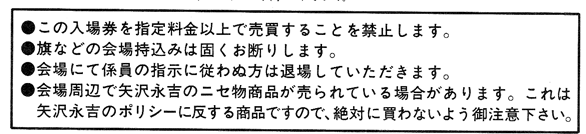 ●この入場券を指定料金以上で売買することを禁止します。
●旗などの会場持込みは固くお断りします。
●会場にて係員の指示に従わぬ方は退場していただきます。
●会場周辺で矢沢永吉のニセ物商品が売られている場合があります。これは
矢沢永吉のポリシーに反する商品ですので、絶対に買わないよう御注意下さい。